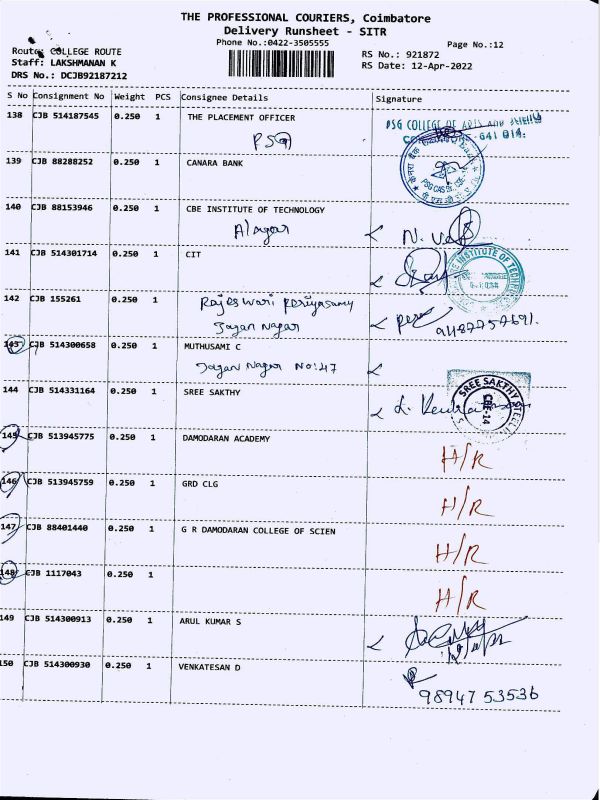 THE PROFESSIONAL COURIERS, Coimbatore
Delivery Runsheet - SITR
Phone No.:0422-3505555
Page No.:12
Route: COLLEGE ROUTE
RS No.: 921872
Staff: LAKSHMANAN K
RS Date: 12-Apr-2022
DRS No.: DCJB92187212
S No Consignment No Weight PCS Consignee Details Signature
138 CJB 514187545 0.250 1 THE PLACEMENT OFFICER
PSG COLLEGE OF ARTS AND SCIENCE
641 014.
139 CJB 88288252 0.250 1 CANARA BANK
PSG CAS
140 CJB 88153946 0.250 1 CBE INSTITUTE OF TECHNOLOGY
Alagar
141 CJB 514301714 0.250 1 CIT
INSTITUTE OF TECHN
142 CJB 155261 0.250 1 Rajeswari Periyasamy
Jagan Nagar
143 CJB 514300658 0.250 1 MUTHUSAMI C
Jagan Nagar No:47
144 CJB 514331164 0.250 1 SREE SAKTHY
SREE SAKTHY STEEL
CBE-14
145 CJB 513945775 0.250 1 DAMODARAN ACADEMY
H/R
146 CJB 513945759 0.250 1 GRD CLG
H/R
147 CJB 88401440 0.250 1 G R DAMODARAN COLLEGE OF SCIEN
H/R
148 CJB 1117043 0.250 1
H/R
149 CJB 514300913 0.250 1 ARUL KUMAR S
150 CJB 514300930 0.250 1 VENKATESAN D
98947 53536